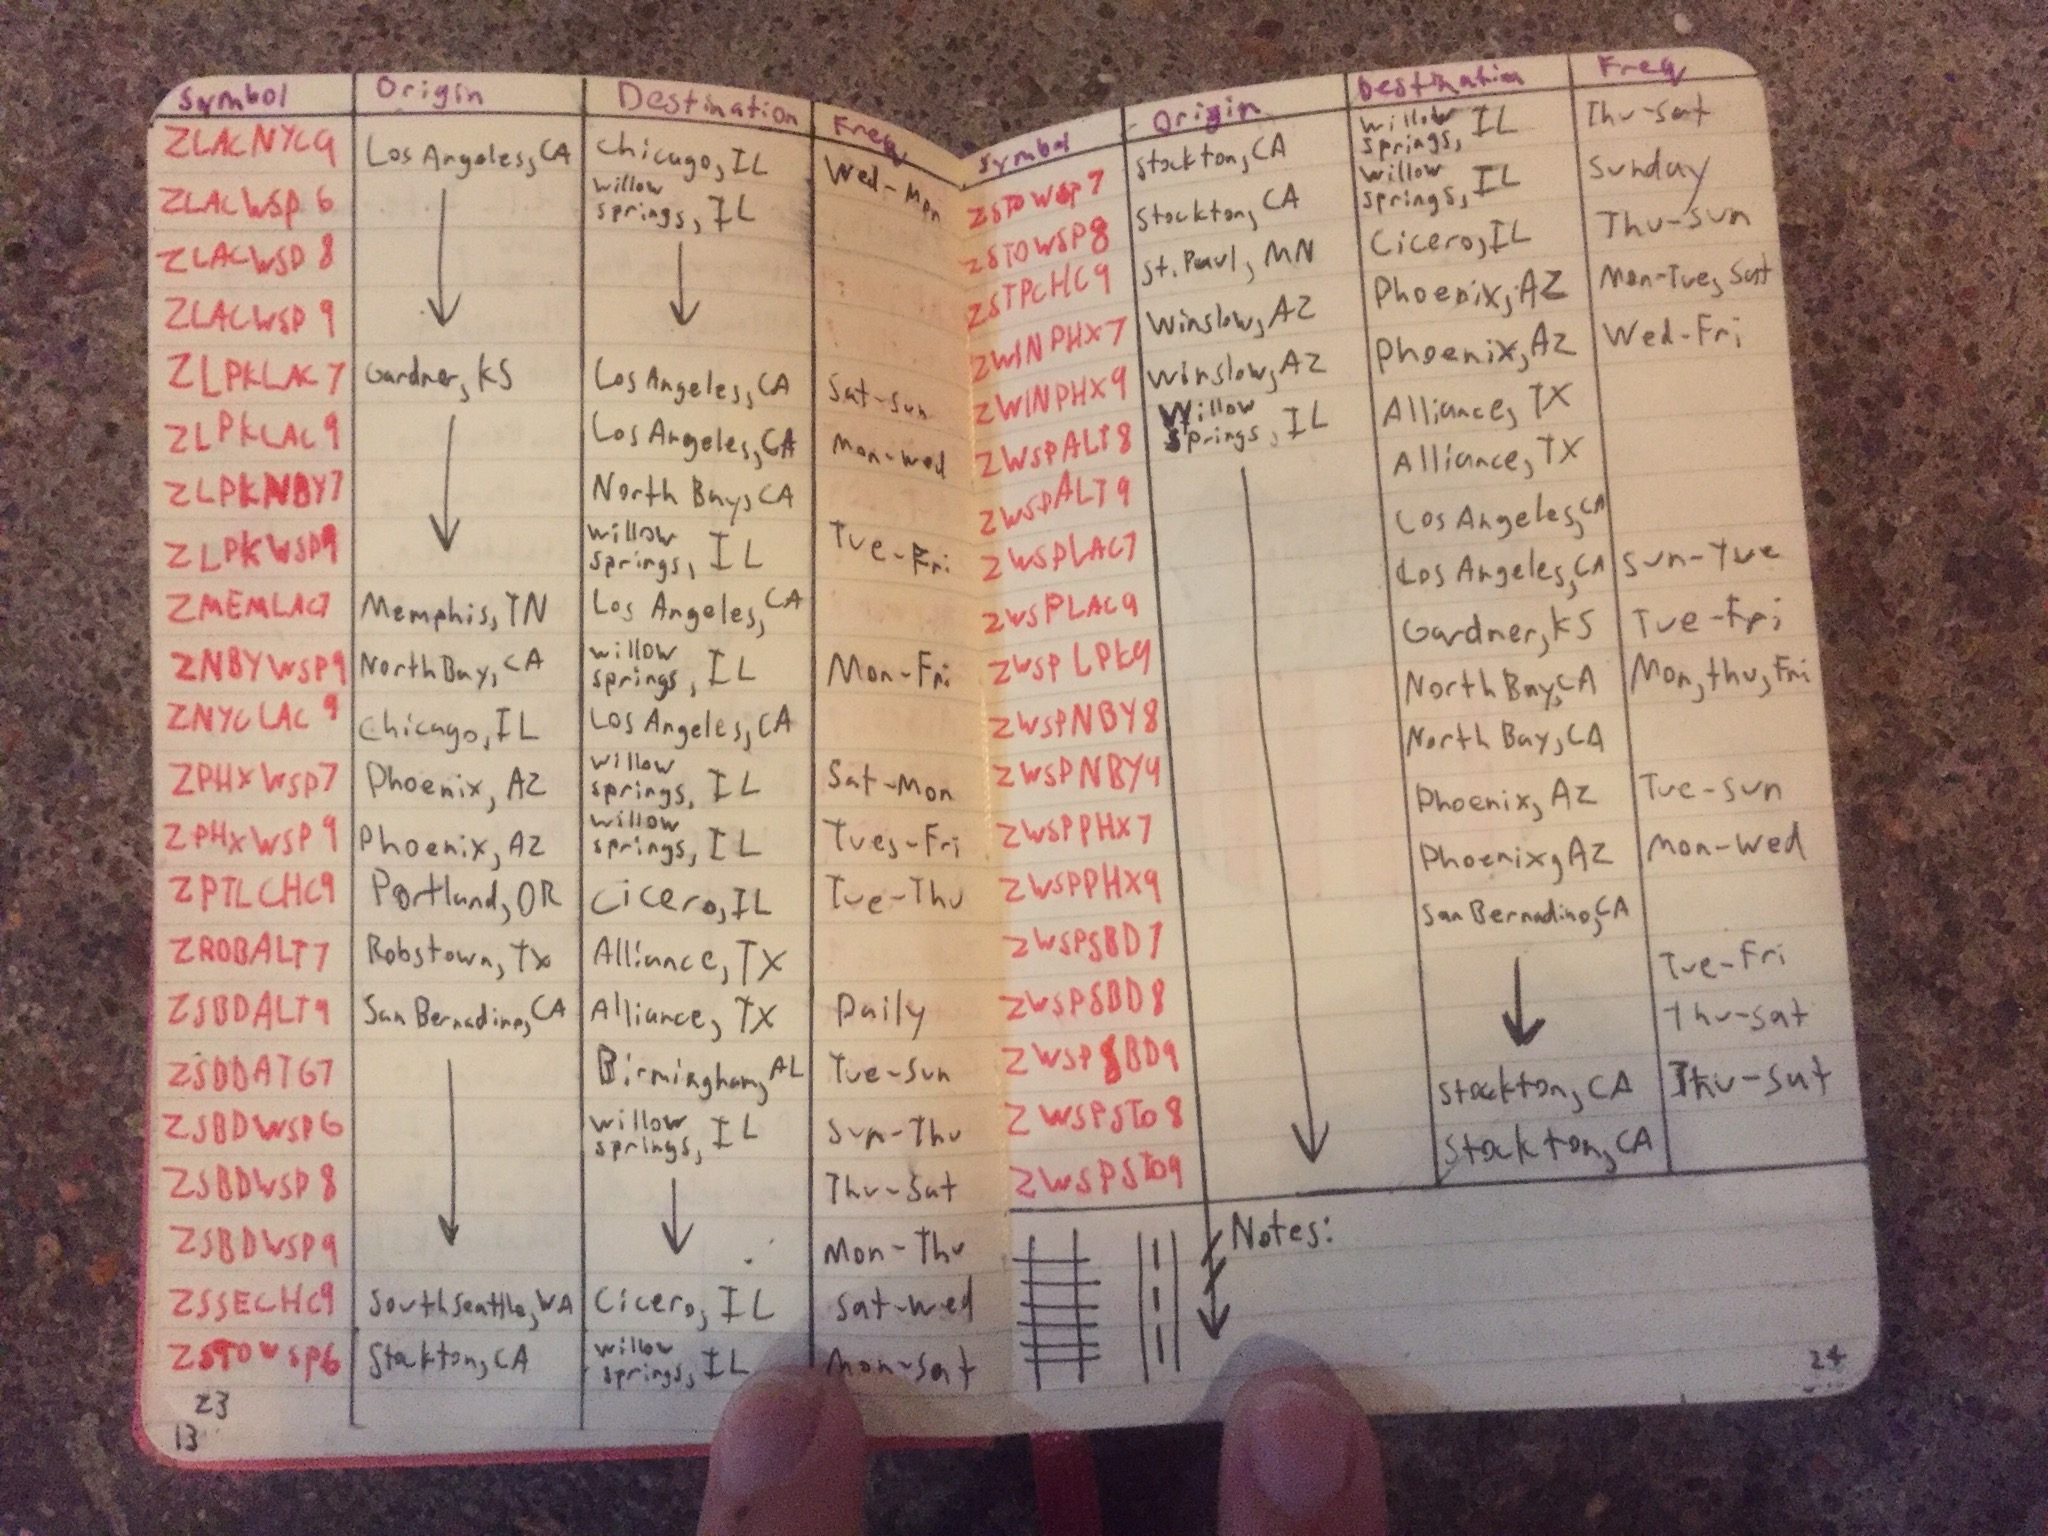 Symbol Origin Destination Freq
ZLACNYC9 Los Angeles, CA Chicago, IL Wed-Mon
ZLACWSP6 willow springs, IL
ZLACWSP8
ZLACWSP9
ZLPKLAC7 Gardner, KS Los Angeles, CA Sat-Sun
ZLPKLAC9 Los Angeles, CA Mon-Wed
ZLPKNBY7 North Bay, CA
ZLPKWSP9 willow springs, IL Tue-Fri
ZMEMLAC7 Memphis, TN Los Angeles, CA
ZNBYWSP9 North Bay, CA willow springs, IL Mon-Fri
ZNYCLAC9 Chicago, IL Los Angeles, CA
ZPHXWSP7 Phoenix, AZ willow springs, IL Sat-Mon
ZPHXWSP9 Phoenix, AZ willow springs, IL Tues-Fri
ZPTLCHC9 Portland, OR Cicero, IL Tue-Thu
ZROBALT7 Robstown, TX Alliance, TX
ZSBDALT9 San Bernadino, CA Alliance, TX Daily
ZSBDATG7 Birmingham, AL Tue-Sun
ZSBDWSP6 willow springs, IL Sun-Thu
ZSBDWSP8 Thu-Sat
ZSBDWSP9 Mon-Thu
ZSSECHC9 South Seattle, WA Cicero, IL Sat-Wed
ZSTOWSP6 Stockton, CA willow springs, IL Mon-Sat
23
13
Symbol Origin Destination Freq
ZSTOWSP7 Stockton, CA willow springs, IL Thu-Sat
ZSTOWSP8 Stockton, CA willow springs, IL Sunday
ZSTPCHC9 St. Paul, MN Cicero, IL Thu-Sun
ZWINPHX7 Winslow, AZ Phoenix, AZ Mon-Tue, Sat
ZWINPHX9 Winslow, AZ Phoenix, AZ Wed-Fri
ZWSPALT8 Willow Springs, IL Alliance, TX
ZWSPALT9 Alliance, TX
ZWSPLAC7 Los Angeles, CA
ZWSPLAC9 Los Angeles, CA Sun-Tue
ZWSPLPK9 Gardner, KS Tue-Fri
ZWSPNBY8 North Bay, CA Mon, Thu, Fri
ZWSPNBY9 North Bay, CA
ZWSPPHX7 Phoenix, AZ Tue-Sun
ZWSPPHX9 Phoenix, AZ Mon-Wed
ZWSPSBD7 San Bernadino, CA
ZWSPSBD8 Tue-Fri
ZWSPSBD9 Thu-Sat
ZWSPSTO8 Stockton, CA Thu-Sat
ZWSPSTO9 Stockton, CA
Notes:
24